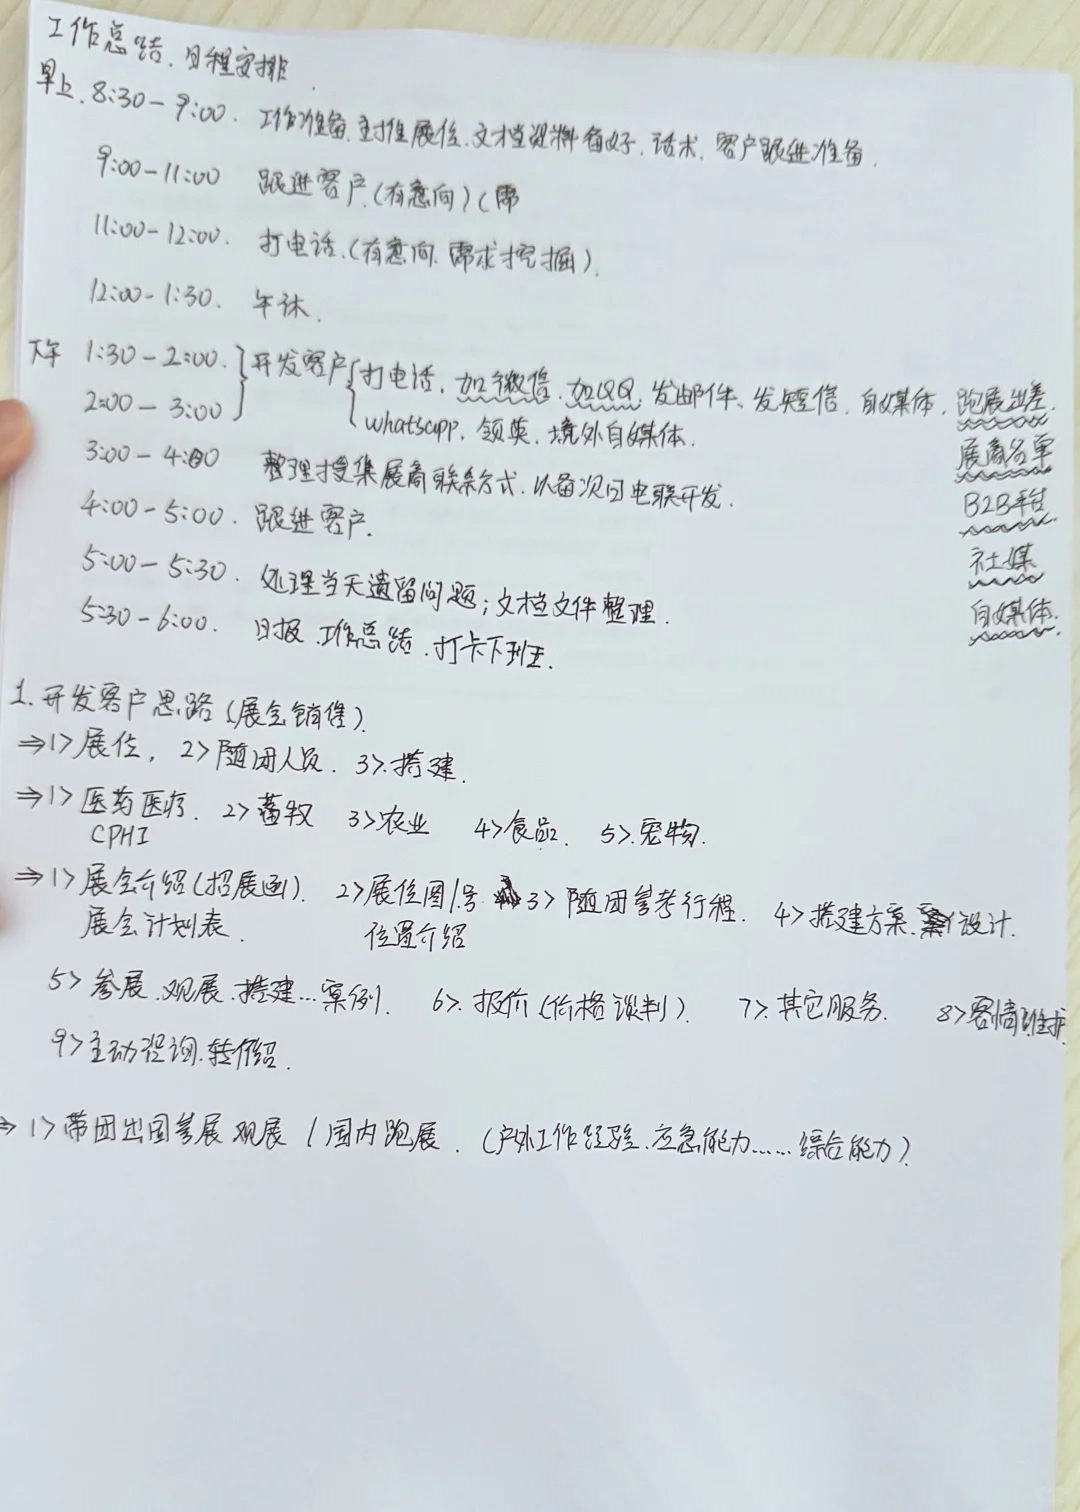 工作总结、日程安排.
早上. 8:30-9:00. 工作准备, 主推展位、文档资料备好、话术、客户跟进准备.
9:00-11:00 跟进客户(有意向)(需
11:00-12:00. 打电话、(有意向、需求挖掘).
12:00-1:30. 午休.
下午 1:30-2:00. 开发客户 打电话、加微信、加QQ、发邮件、发短信、自媒体、跑展出差.
2:00-3:00 whatsapp、领英、境外自媒体. 展商名单
3:00-4:00 整理搜集展商联系方式、以备次日电联开发. B2B平台
4:00-5:00. 跟进客户. 社媒
5:00-5:30. 处理当天遗留问题;文档文件整理. 自媒体.
5:30-6:00. 日报、工作总结、打卡下班.
1. 开发客户思路(展会销售).
⇒1> 展位, 2> 随团人员. 3>. 搭建.
⇒1> 医药医疗. 2> 畜牧 3> 农业 4> 食品. 5>. 宠物.
CPHI
⇒1> 展会介绍(招展函). 2> 展位图/号 3> 随团参考行程. 4> 搭建方案、设计.
展会计划表. 位置介绍
5> 参展、观展、搭建...案例. 6>. 报价(价格谈判). 7>. 其它服务. 8> 客情维护.
9> 主动咨询、转介绍.
⇒ 1> 带团出国参展观展 / 国内跑展. (户外工作经验、应急能力......综合能力).